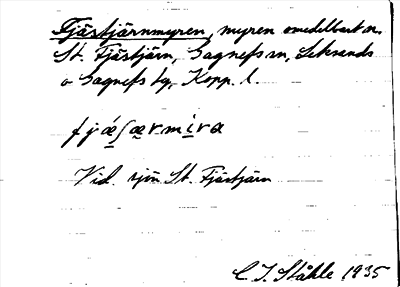 Fjästjärnmyren, myren omedelbart n.
St. Fjästjärn, Gagnefs sn, Leksands
o Gagnefs tg, Kopp. l.
fjæ̀ʃærmìra
Vid. sjön St. Fjästjärn
C. I. Ståhle 1935